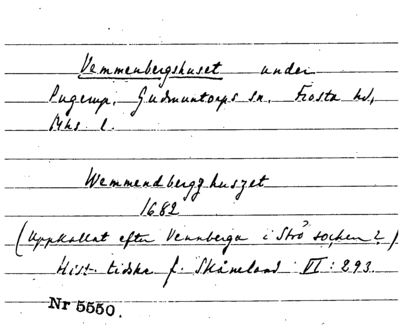 Vemmenbergshuset under
Pugerup, Gudmuntorps sn, Frosta hd,
Mhs l.
Wemmendbergzhuszet
1682
(Uppkallat efter Vennberga i Strö socken?)
Hist. tidskr f. Skåneland VI: 293.
Nr 5550.